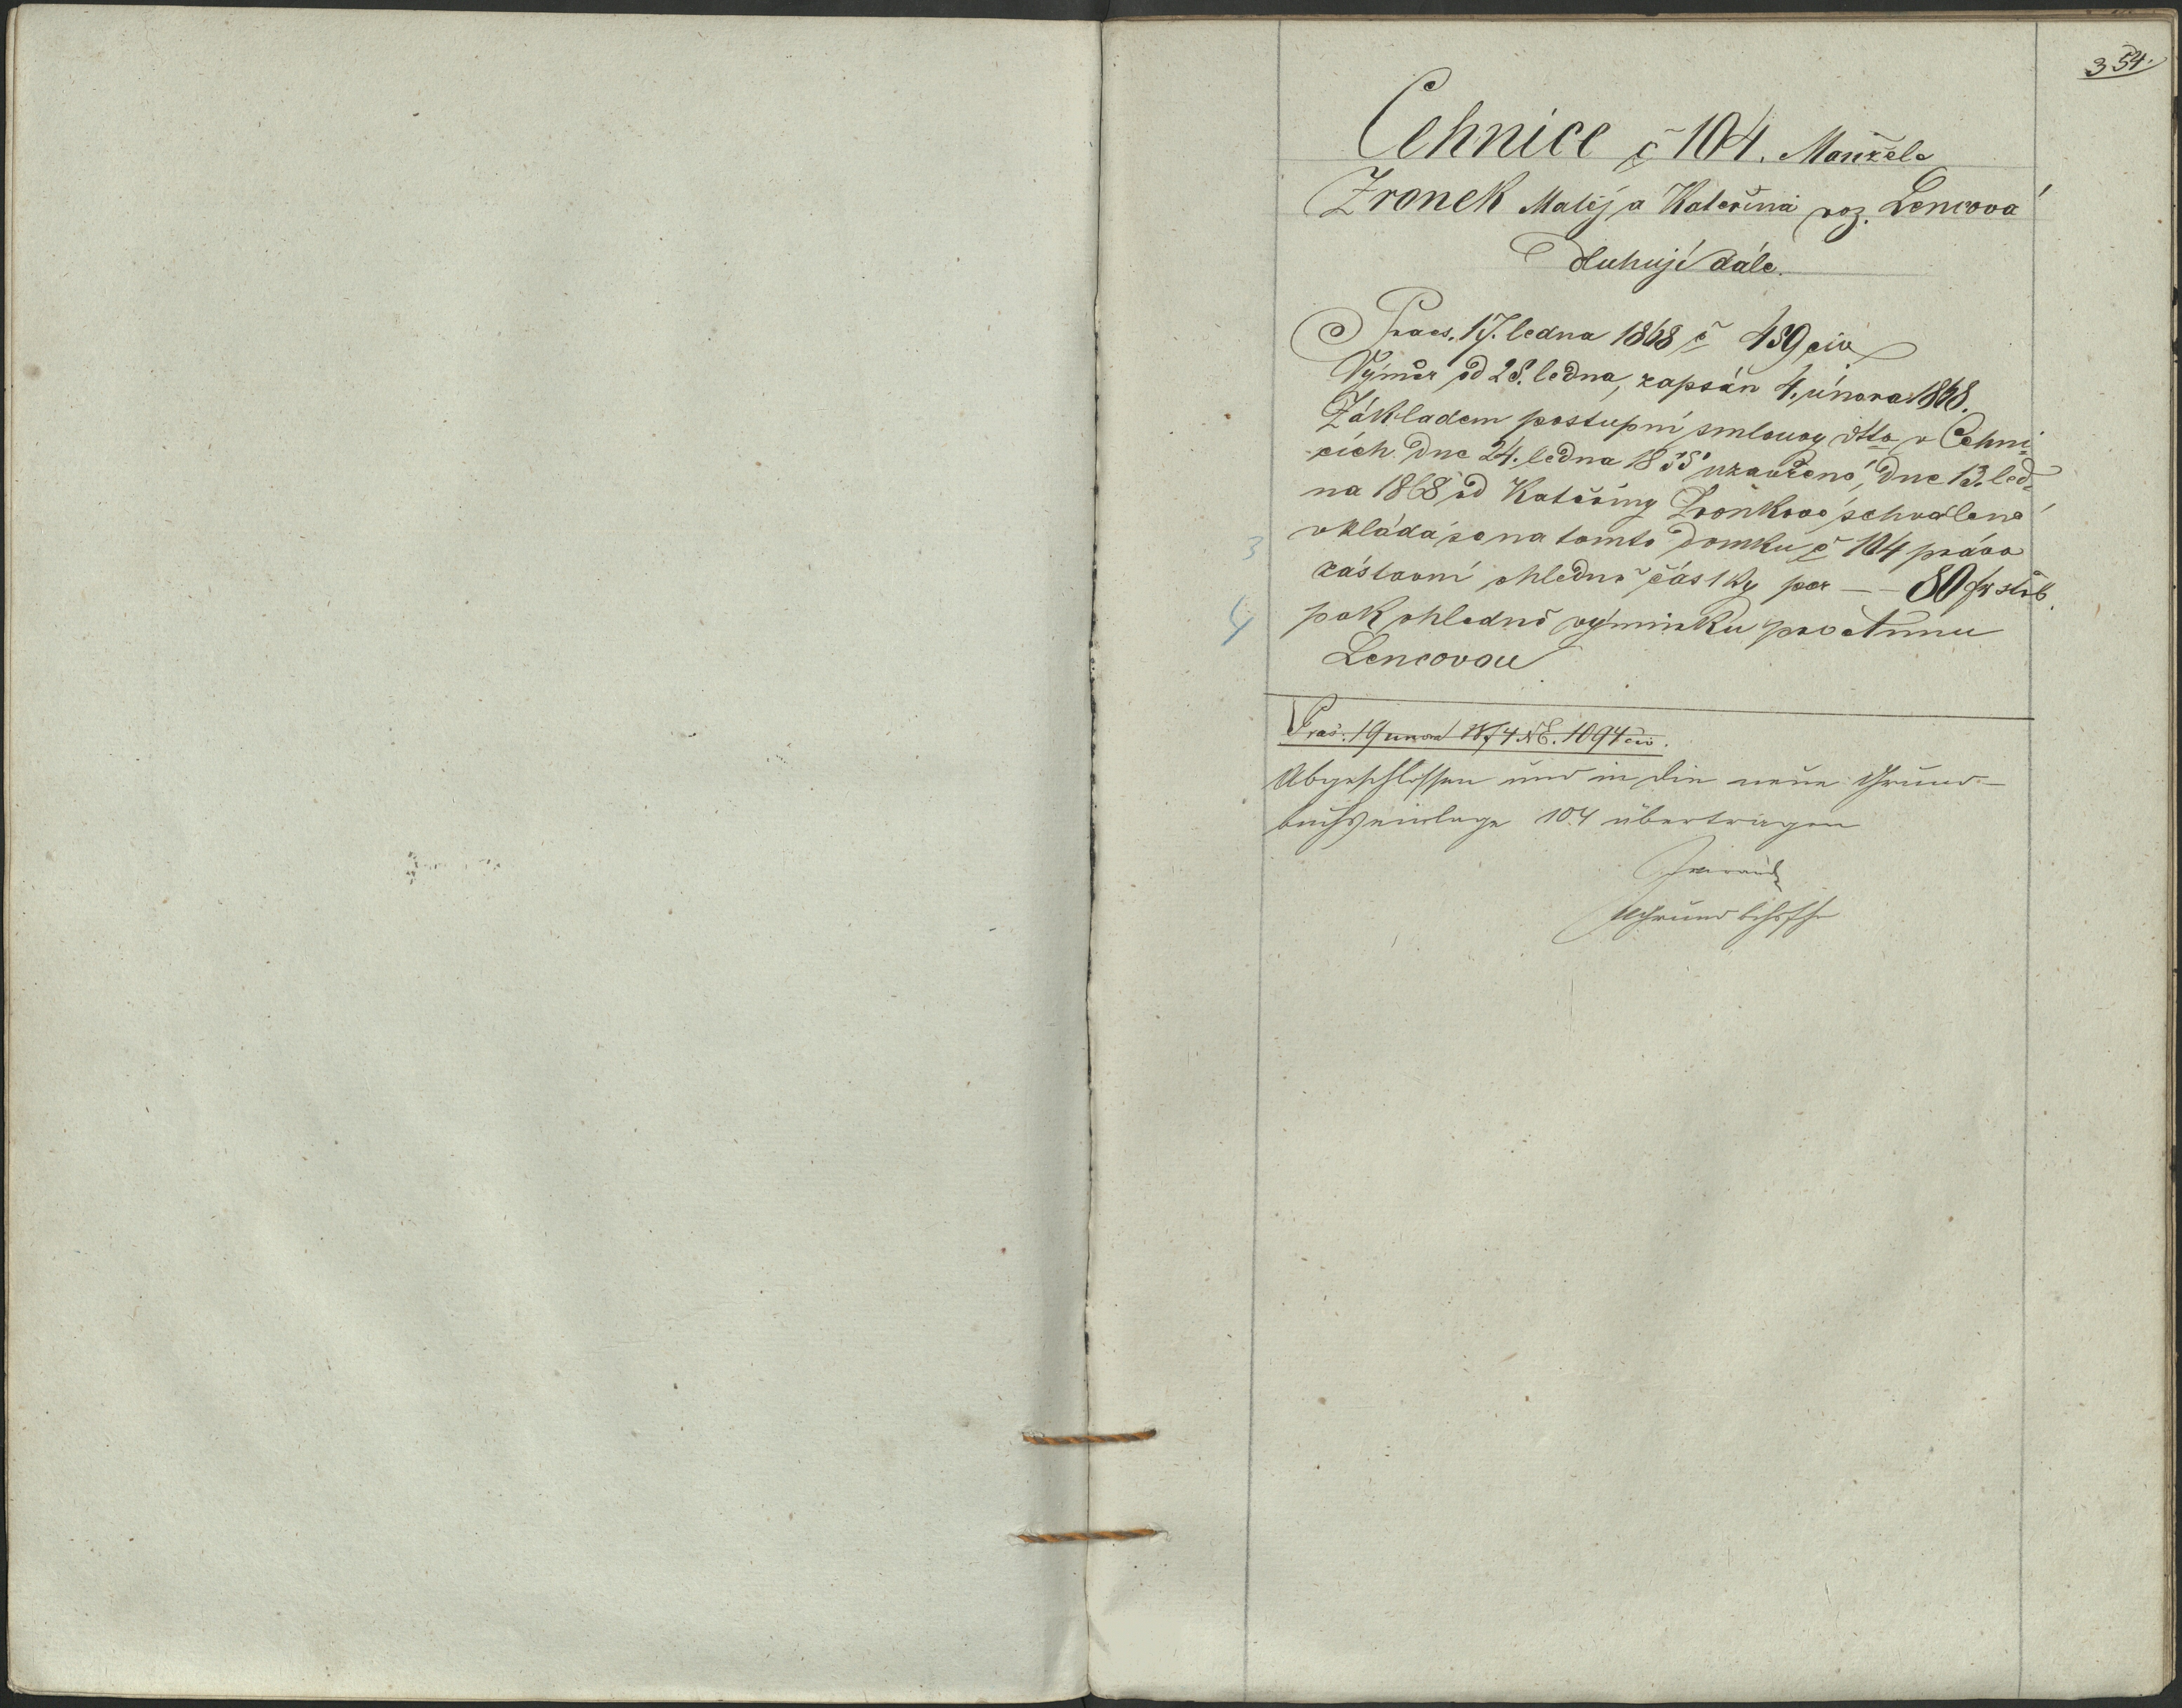 354.
Cehnice č 104. Manžele
Zronek Matěj a Kateřina roz. Lencová
dluhují dále.
Praes. 17. ledna 1868 č 459 civ
Výměr od 28. ledna, zapsán 4. února 1868.
Základem postupní smlouvy dtto v Cehni-
cích dne 24. ledna 1855 uzavřené, dne 13. led-
na 1868 od Kateřiny Zronkové schválené
vkládá se na tomto domku č 104 právo
3
zástavní ohledně částky per — 80 fr stříb.
4
pak ohledně výminku pro Annu
Lencovou
Pras. 19 unora 1874 NE. 1094 civ.
Abgeschlossen und in die neue Grund-
buchseinlage 104 übertragen